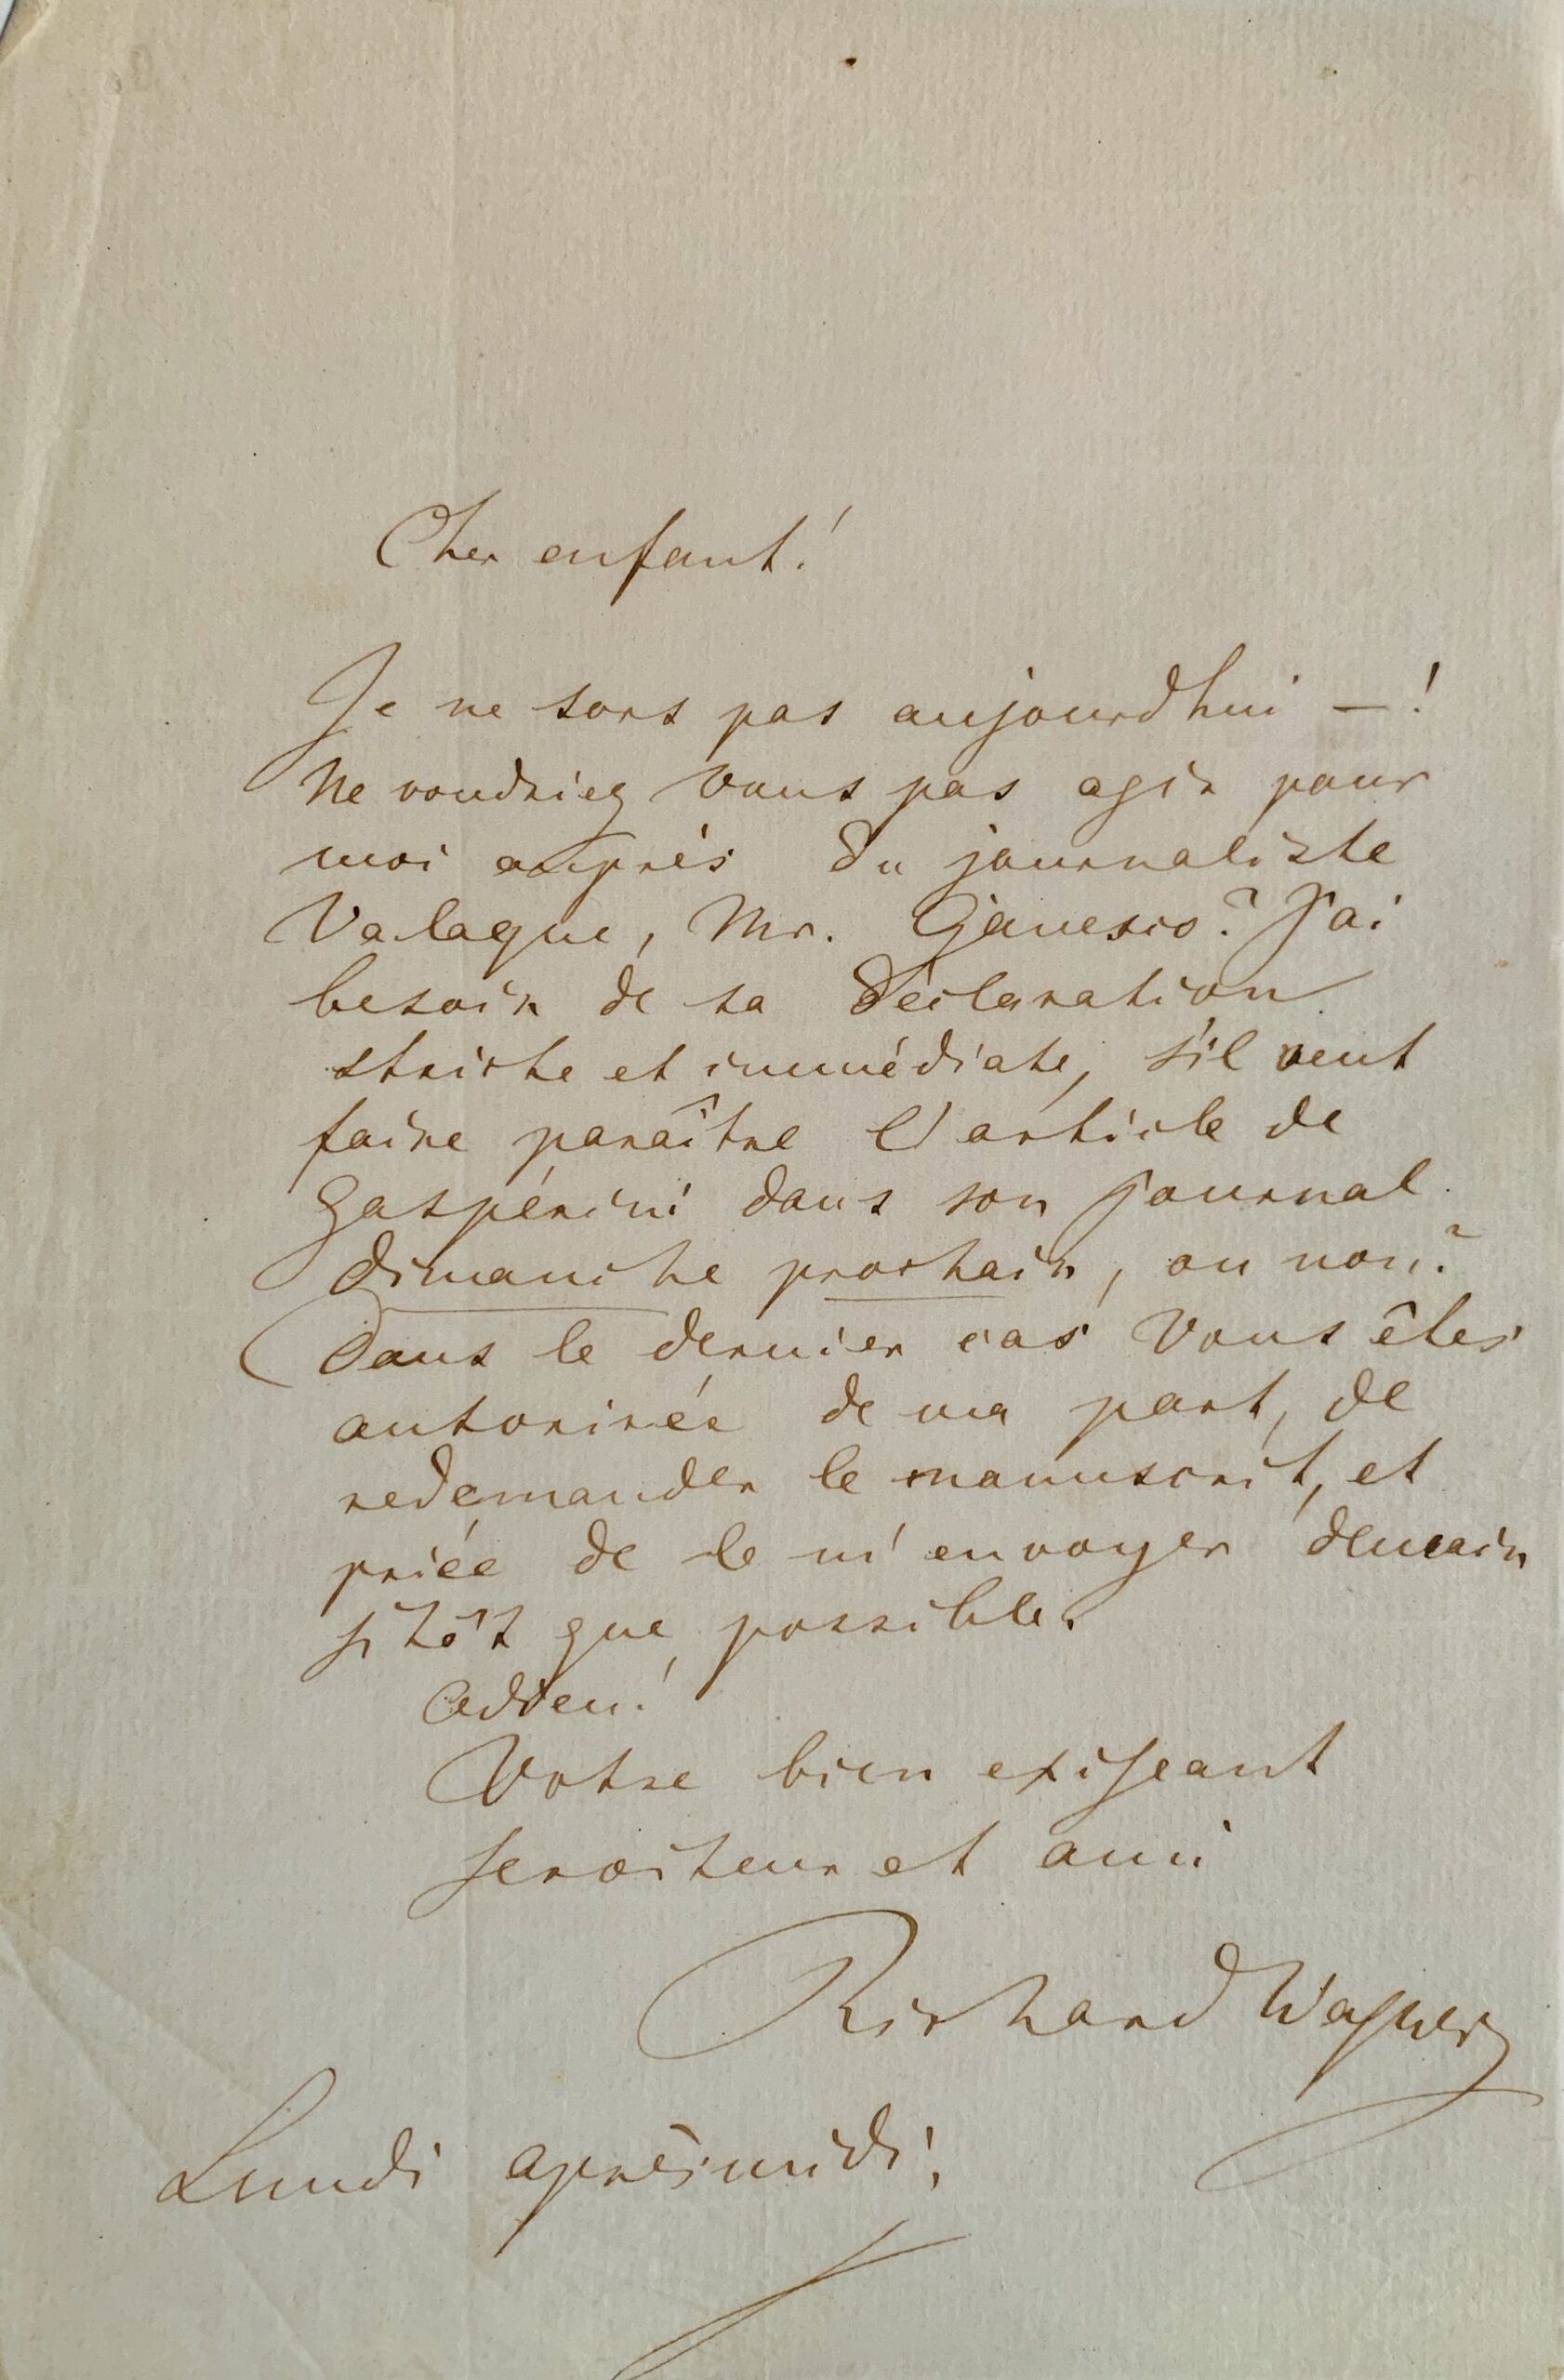 Cher enfant!
Je ne sors pas aujourdhui —!
Ne voudriez Vous pas agir pour
moi auprès du journaliste
Valaque, Mr. Ganesco? J'ai
besoin de sa déclaration
stricte et immédiate, s'il veut
faire paraître l'article de
Gaspérini dans son journal
Dimanche prochain, ou non?
Dans le dernier cas Vous êtes
autorisée de ma part, de
redemander le manuscrit, et
priée de le m'envoyer demain
si tôt que possible.
Adieu!
Votre bien exigeant
serviteur et ami
Richard Wagner
Lundi aprèsmidi;